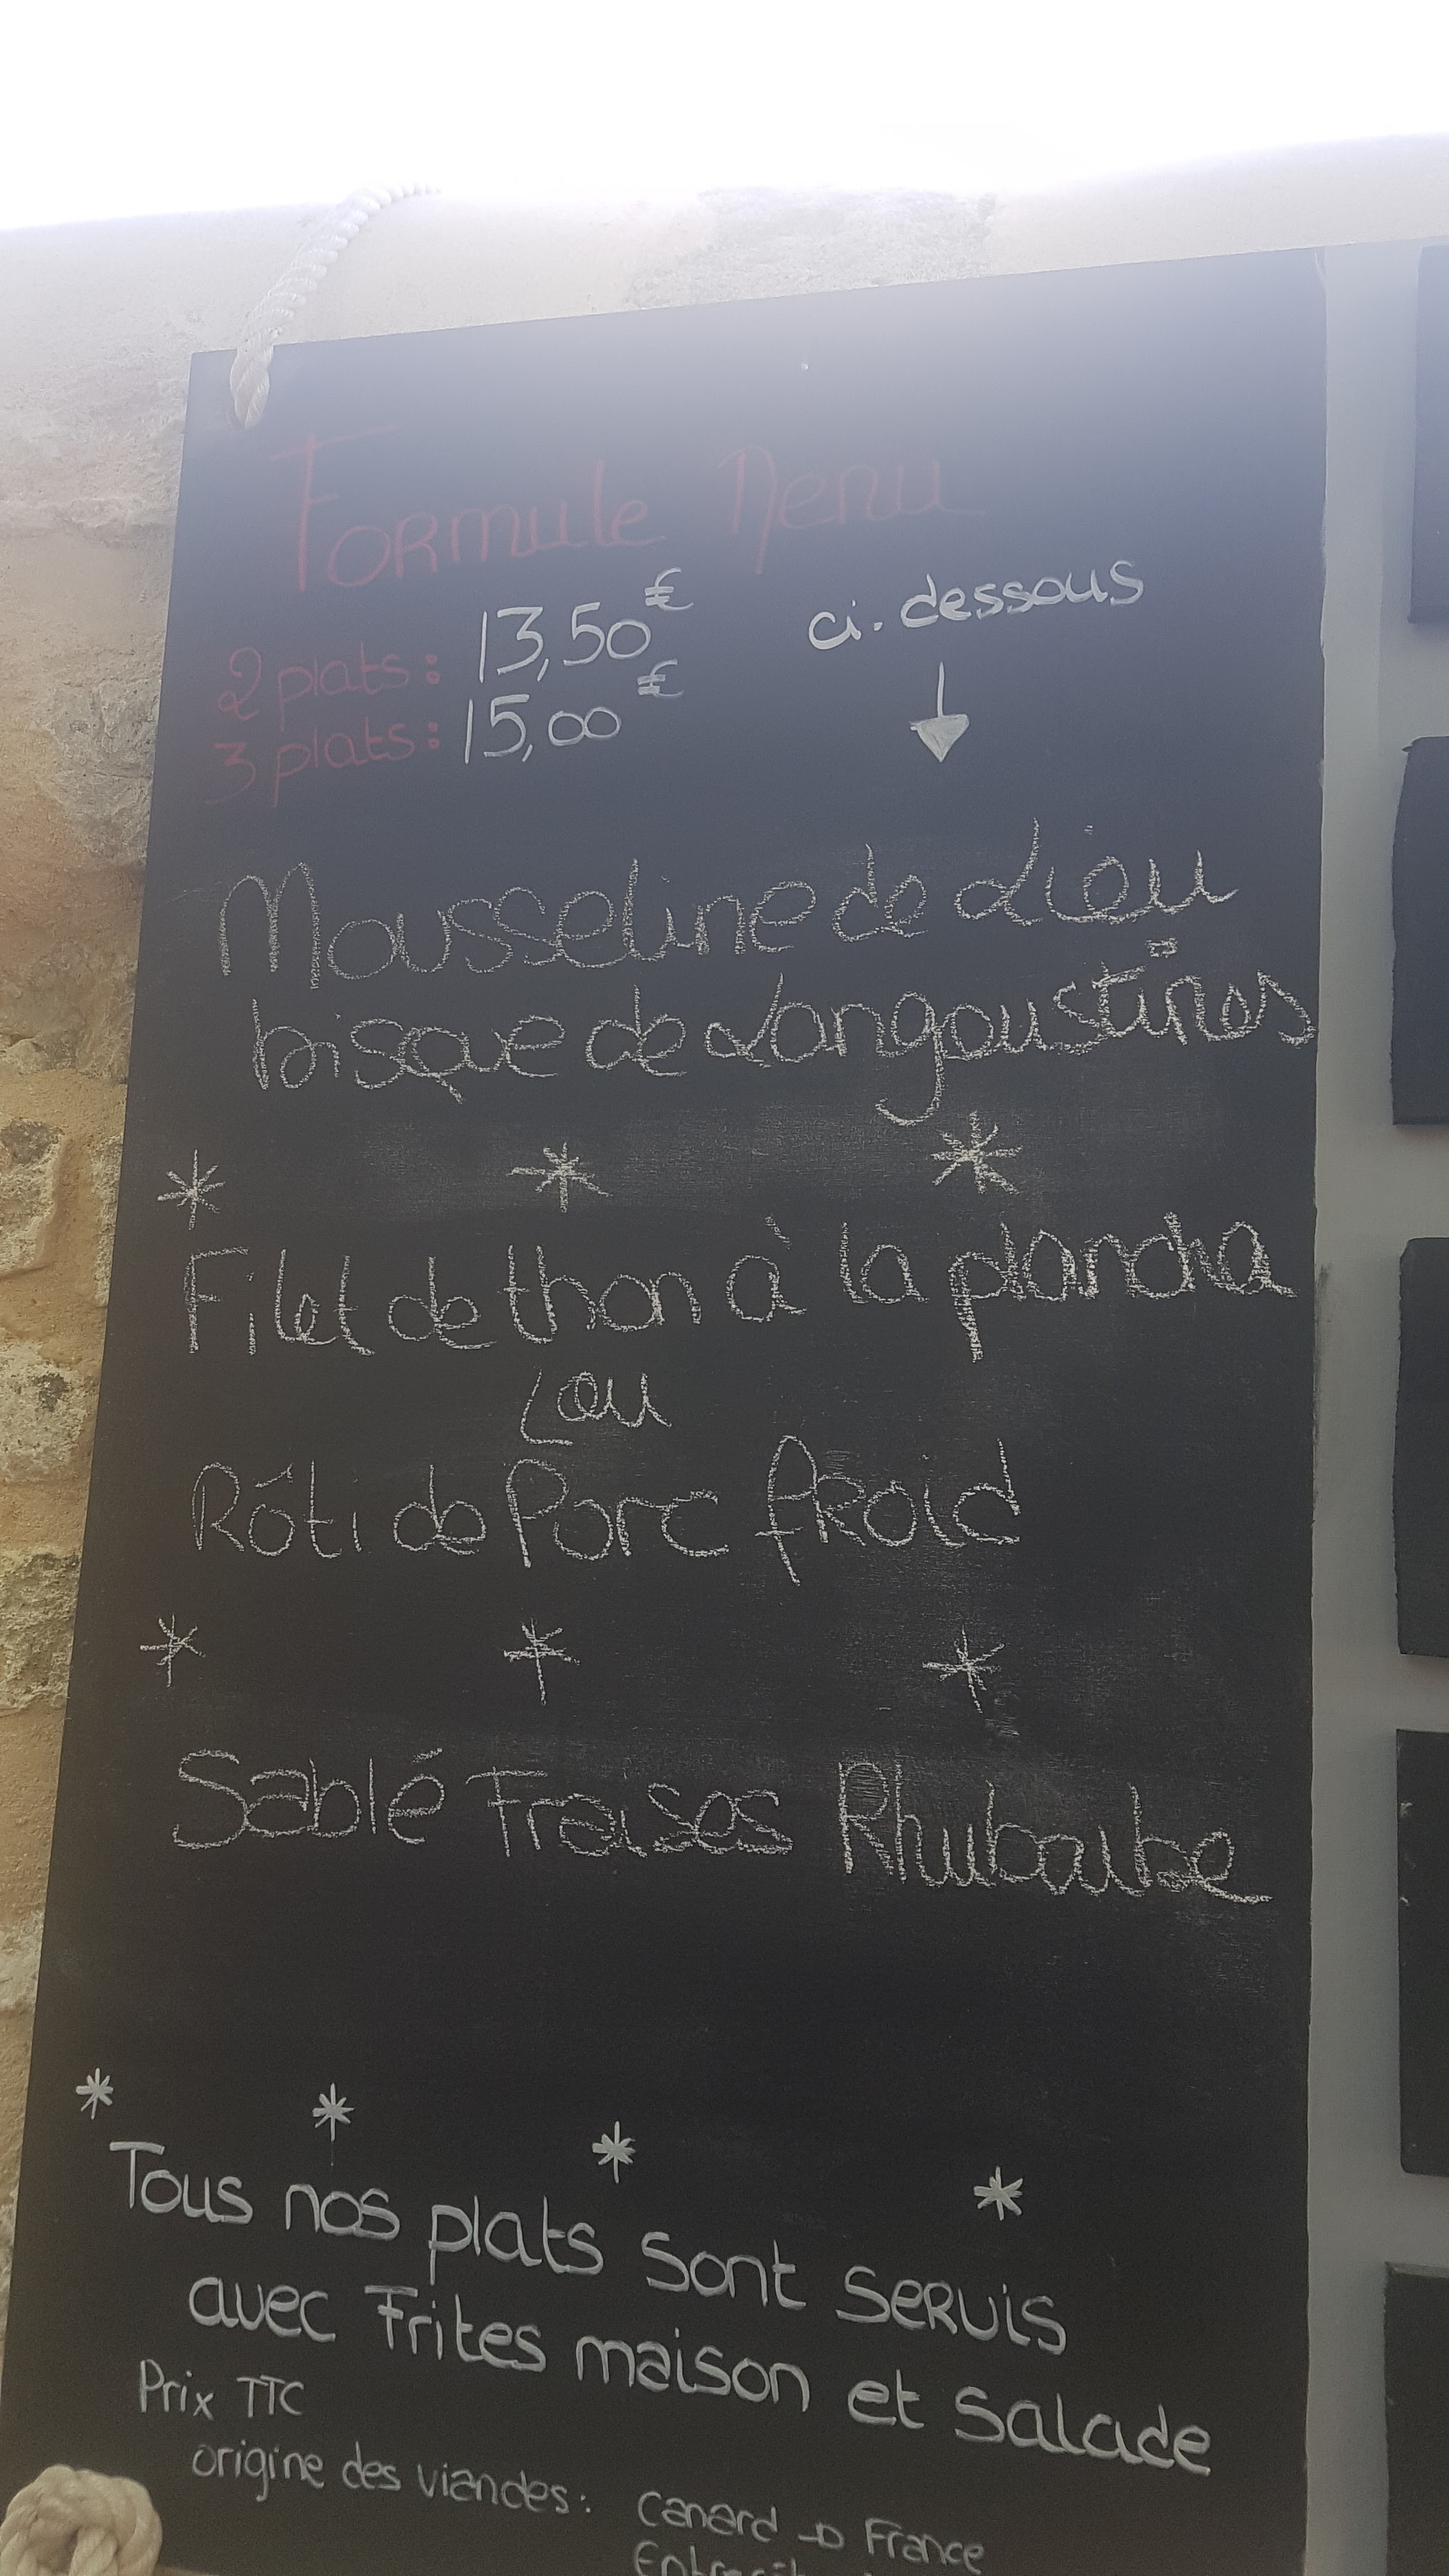 Formule Menu
2 plats: 13,50€
3 plats: 15,00€
ci.dessous
Mousseline de Lieu
bisque de Langoustines
Filet de thon à la plancha
ou
Rôti de Porc froid
Sablé Fraises Rhubarbe
Tous nos plats sont servis
avec Frites maison et Salade
Prix TTC
origine des viandes: Canard → France